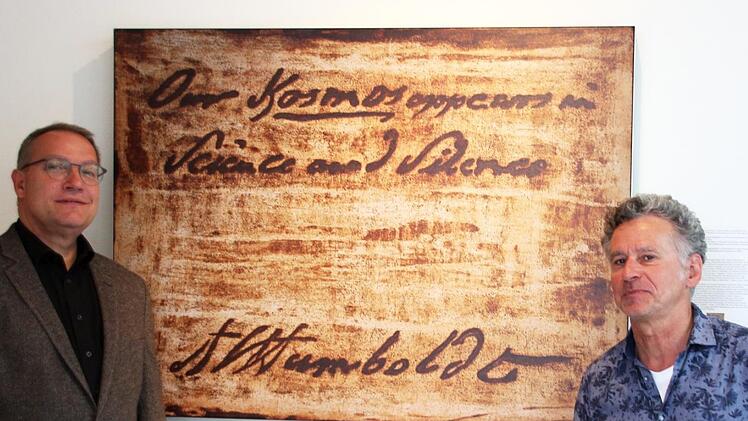 Our Kosmos appears in
Science and Silence
AVHumboldt